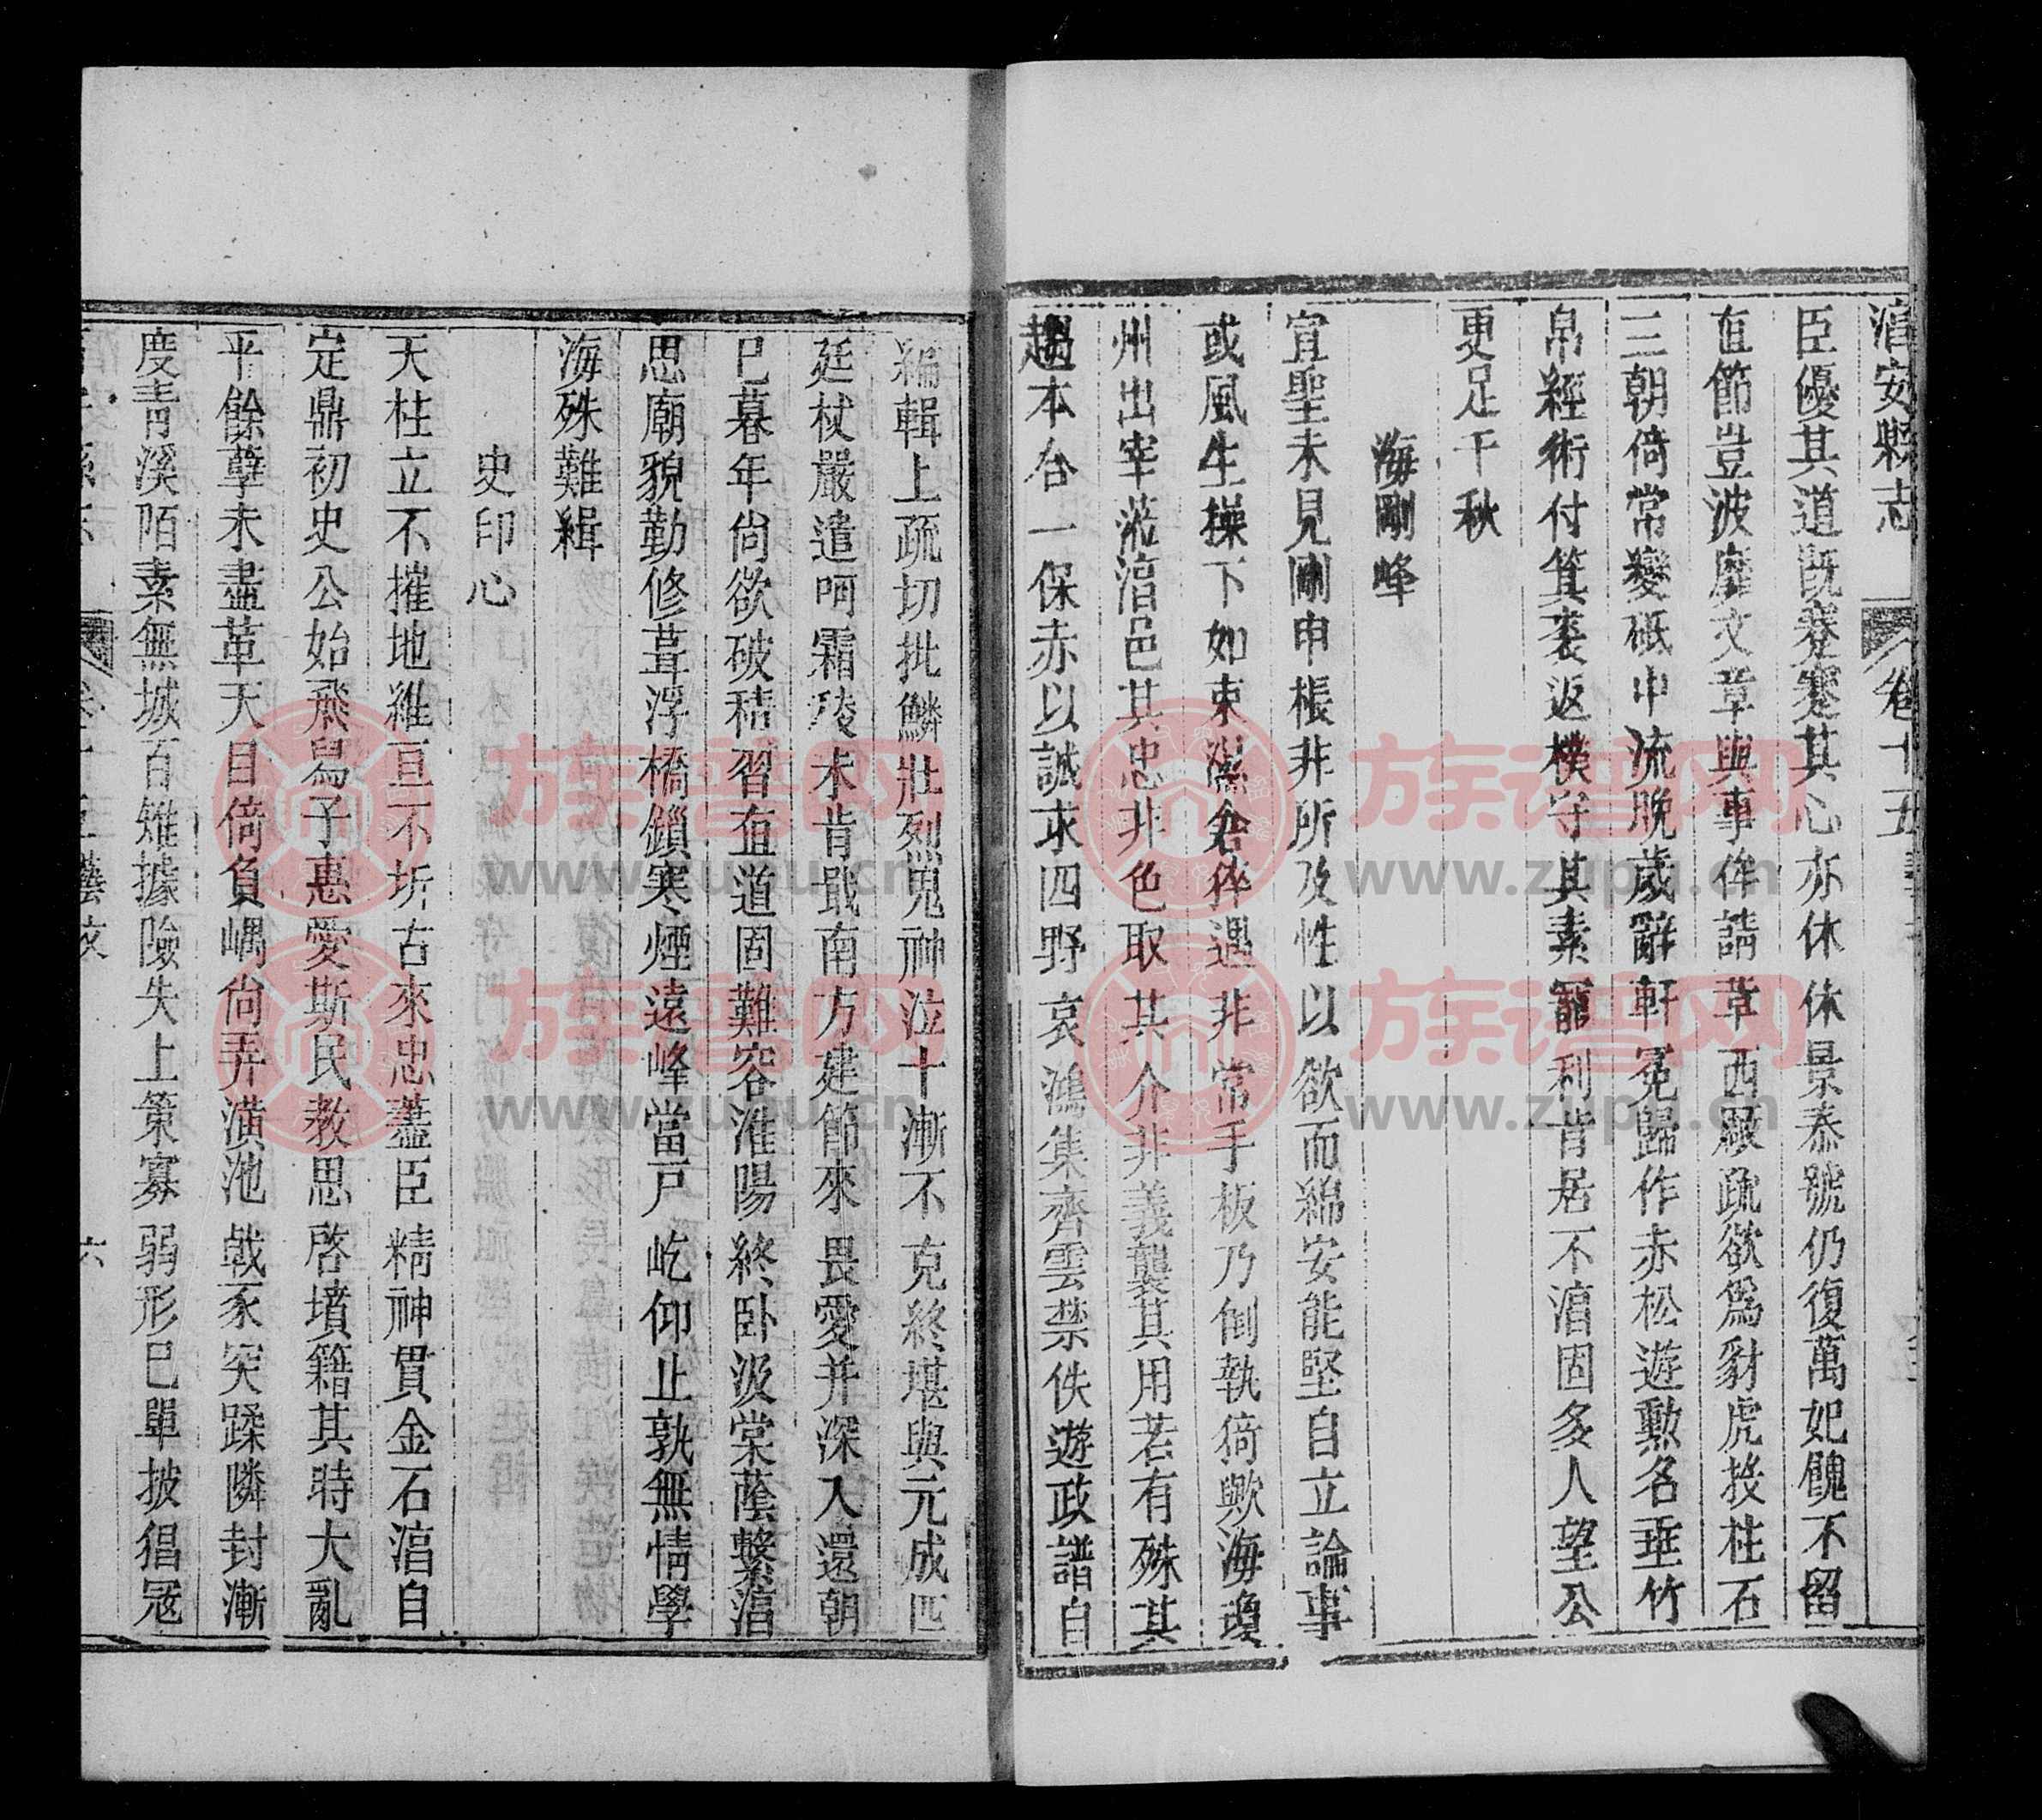 淳安縣志
卷十五
臣優其道既蹇蹇其心亦休休景泰號仍復萬妃餽不留
直節豈波靡文章與事侔請草西厰疏欲爲豺虎投柱石
三朝倚常變砥中流晚歲辭軒冕歸作赤松遊勲名垂竹
帛經術付箕裘返樸守其素寵利肯居不淳固多人望公
更足千秋
海剛峰
宣聖未見剛申棖非所及性以欲而綿安能堅自立論事
或風生操下如束濕倉猝遇非常手板乃倒執猗歟海瓊
州出宰涖淳邑其忠非色取其介非義襲其用若有殊其
趨本合一保赤以誠求四野哀鴻集齊雲禁佚遊政譜自
編輯上疏切批鱗壯烈鬼神泣十漸不克終堪與元成匹
廷杖嚴遣呵霜稜未肯戢南方建節來畏愛并深入還朝
已暮年尙欲破積習直道固難容淮陽終卧汲棠蔭繫淳
思廟貌勤修葺浮橋鎖寒煙遠峰當戸屹仰止孰無情學
海殊難緝
史印心
天柱立不摧地維亘不折古來忠藎臣精神貫金石淳自
定鼎初史公始飛舄子惠愛斯民教思啓墳籍其時大亂
平餘孽未盡革天目倚負嵎尙弄潢池戟豕突蹂隣封漸
度青溪陌素無城百雉據險失上策寡弱形已單披猖冦
卷十五 藝文
六
族谱网
www.zupu.cn
族谱网
www.zupu.cn
族谱网
www.zupu.cn
族谱网
www.zupu.cn